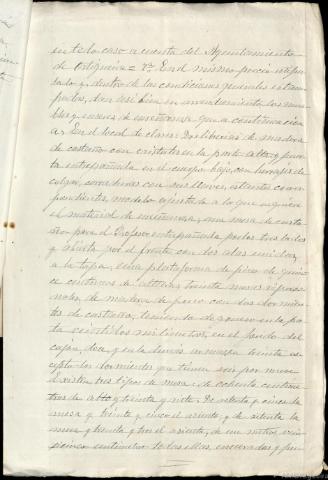 en todo caso a cuenta del Ayuntamiento
de Ortigueira = 7ª En el mismo precio estipu
lado y dentro de las condiciones generales estam
padas, dan así bien en arrendamiento los mue
bles y enseres de enseñanza que a continuación
En el local de clases: Dos librerías de madera
de castaño con cristales en la parte alta y puer
ta entrepañada en el cuerpo bajo, con herrajes de
colgar, cerraduras con sus llaves, estantes corres
pondientes, modelo ajustado a lo que requiere
el material de enseñanza, una mesa de casta
ño para el Profesor entrepañada por los tres lados
y abierta por el frente con dos alas unidas
a la tapa. Una plataforma de pino de quin
ce centímetros de altura, treinta mesas biperso
nales de madera de pino con los dormien
tes de castaño, teniendo de grueso en la par
te
milímetros, en el fondo del
cajón, doce, y en la demás
treinta ex
cepto los dormientes que tienen seis por nueve
Existen tres tipos de mesa: de ochenta centíme
tros de alto y treinta y ocho. De setenta y cinco la
mesa y treinta y cinco el asiento, y de setenta la
mesa y treinta y tres el asiento, de un metro vein
ticinco centímetros todas ellas, enceradas y